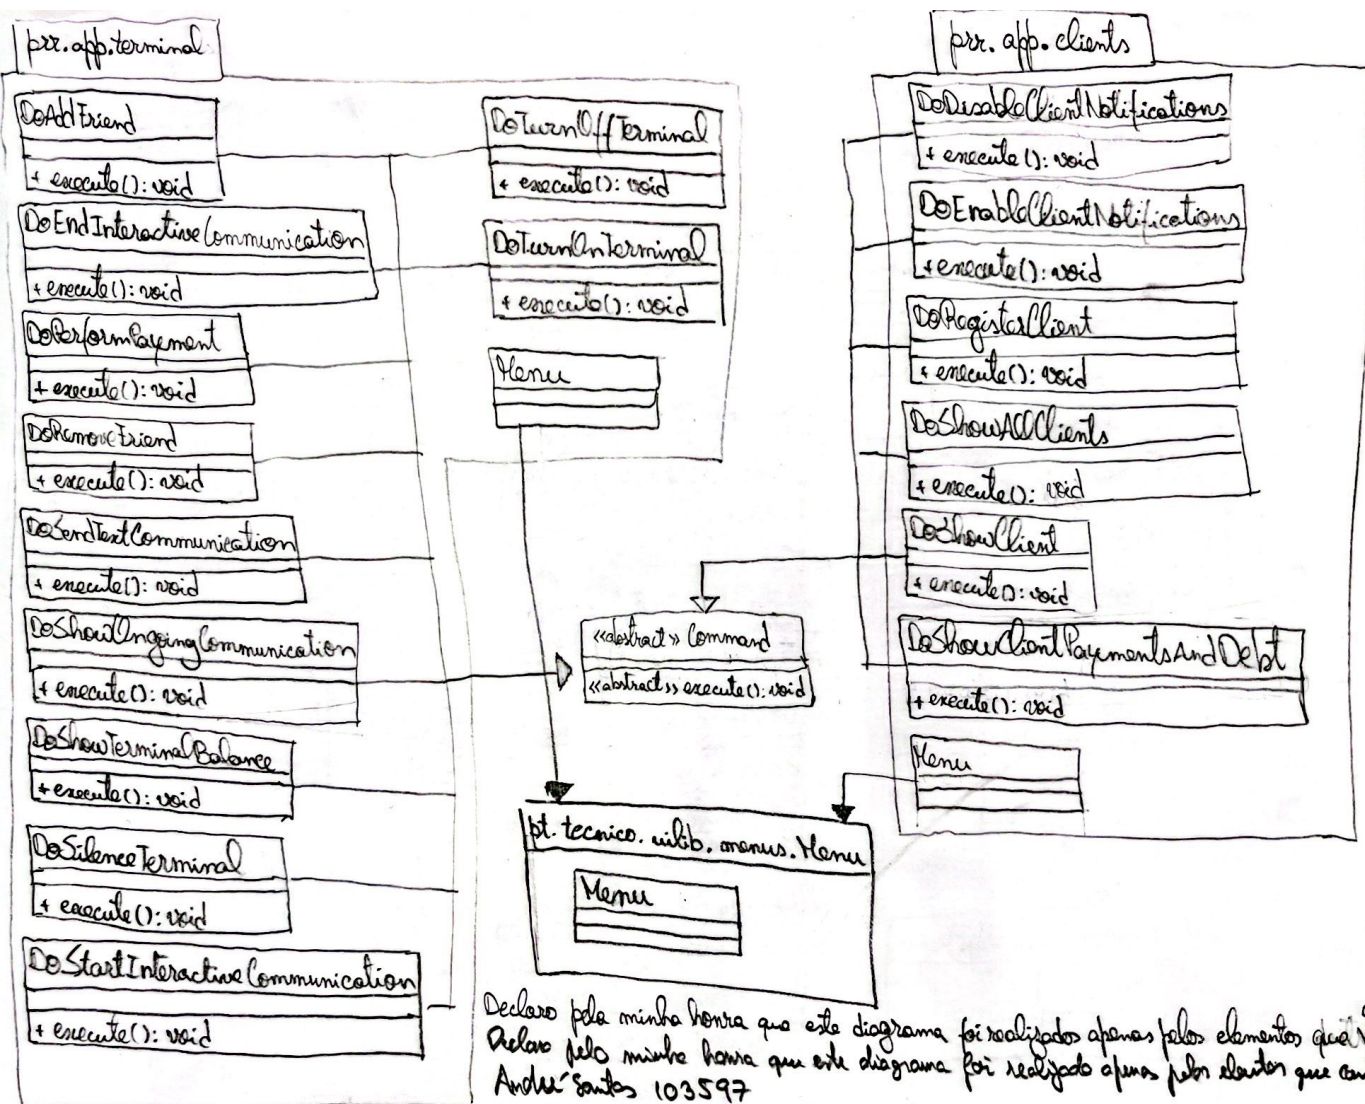 prr.app.terminal
DoAddFriend
+ execute(): void
DoEndInteractiveCommunication
+ execute(): void
DoPerformPayment
+ execute(): void
DoRemoveFriend
+ execute(): void
DoSendTextCommunication
+ execute(): void
DoShowOngoingCommunication
+ execute(): void
DoShowTerminalBalance
+ execute(): void
DoSilenceTerminal
+ execute(): void
DoStartInteractiveCommunication
+ execute(): void
DoTurnOffTerminal
+ execute(): void
DoTurnOnTerminal
+ execute(): void
Menu
prr.app.clients
DoDisableClientNotifications
+ execute(): void
DoEnableClientNotifications
+ execute(): void
DoRegisterClient
+ execute(): void
DoShowAllClients
+ execute(): void
DoShowClient
+ execute(): void
DoShowClientPaymentsAndDebt
+ execute(): void
Menu
<<abstract>> Command
<<abstract>> execute(): void
pt.tecnico.uilib.menus.Menu
Menu
Declaro pela minha honra que este diagrama foi realizados apenas pelos elementos que
Declaro pela minha honra que este diagrama foi realizado apenas pelos elementos que
André Santos 103597